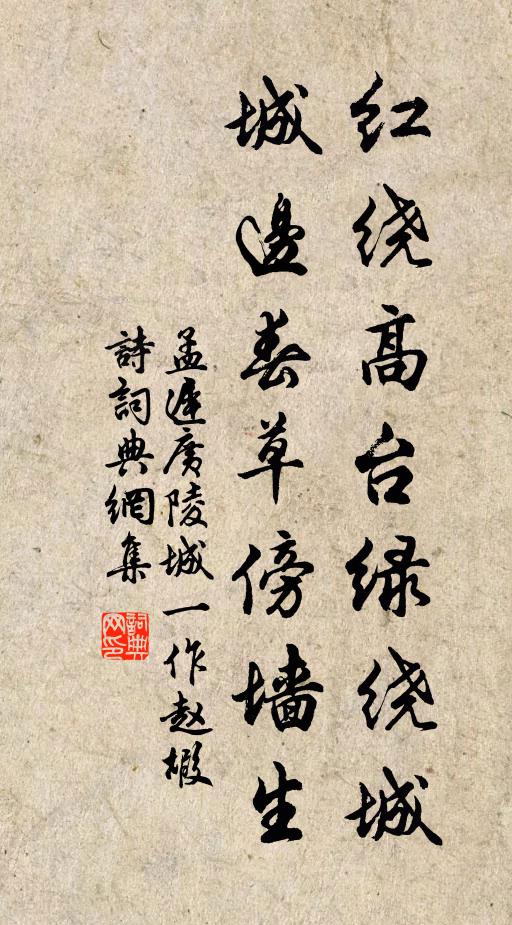 红绕高台绿绕城
城邊春草傍墙生
孟遲廣陵城一作赵嘏
詩詞典網集
詞典网印